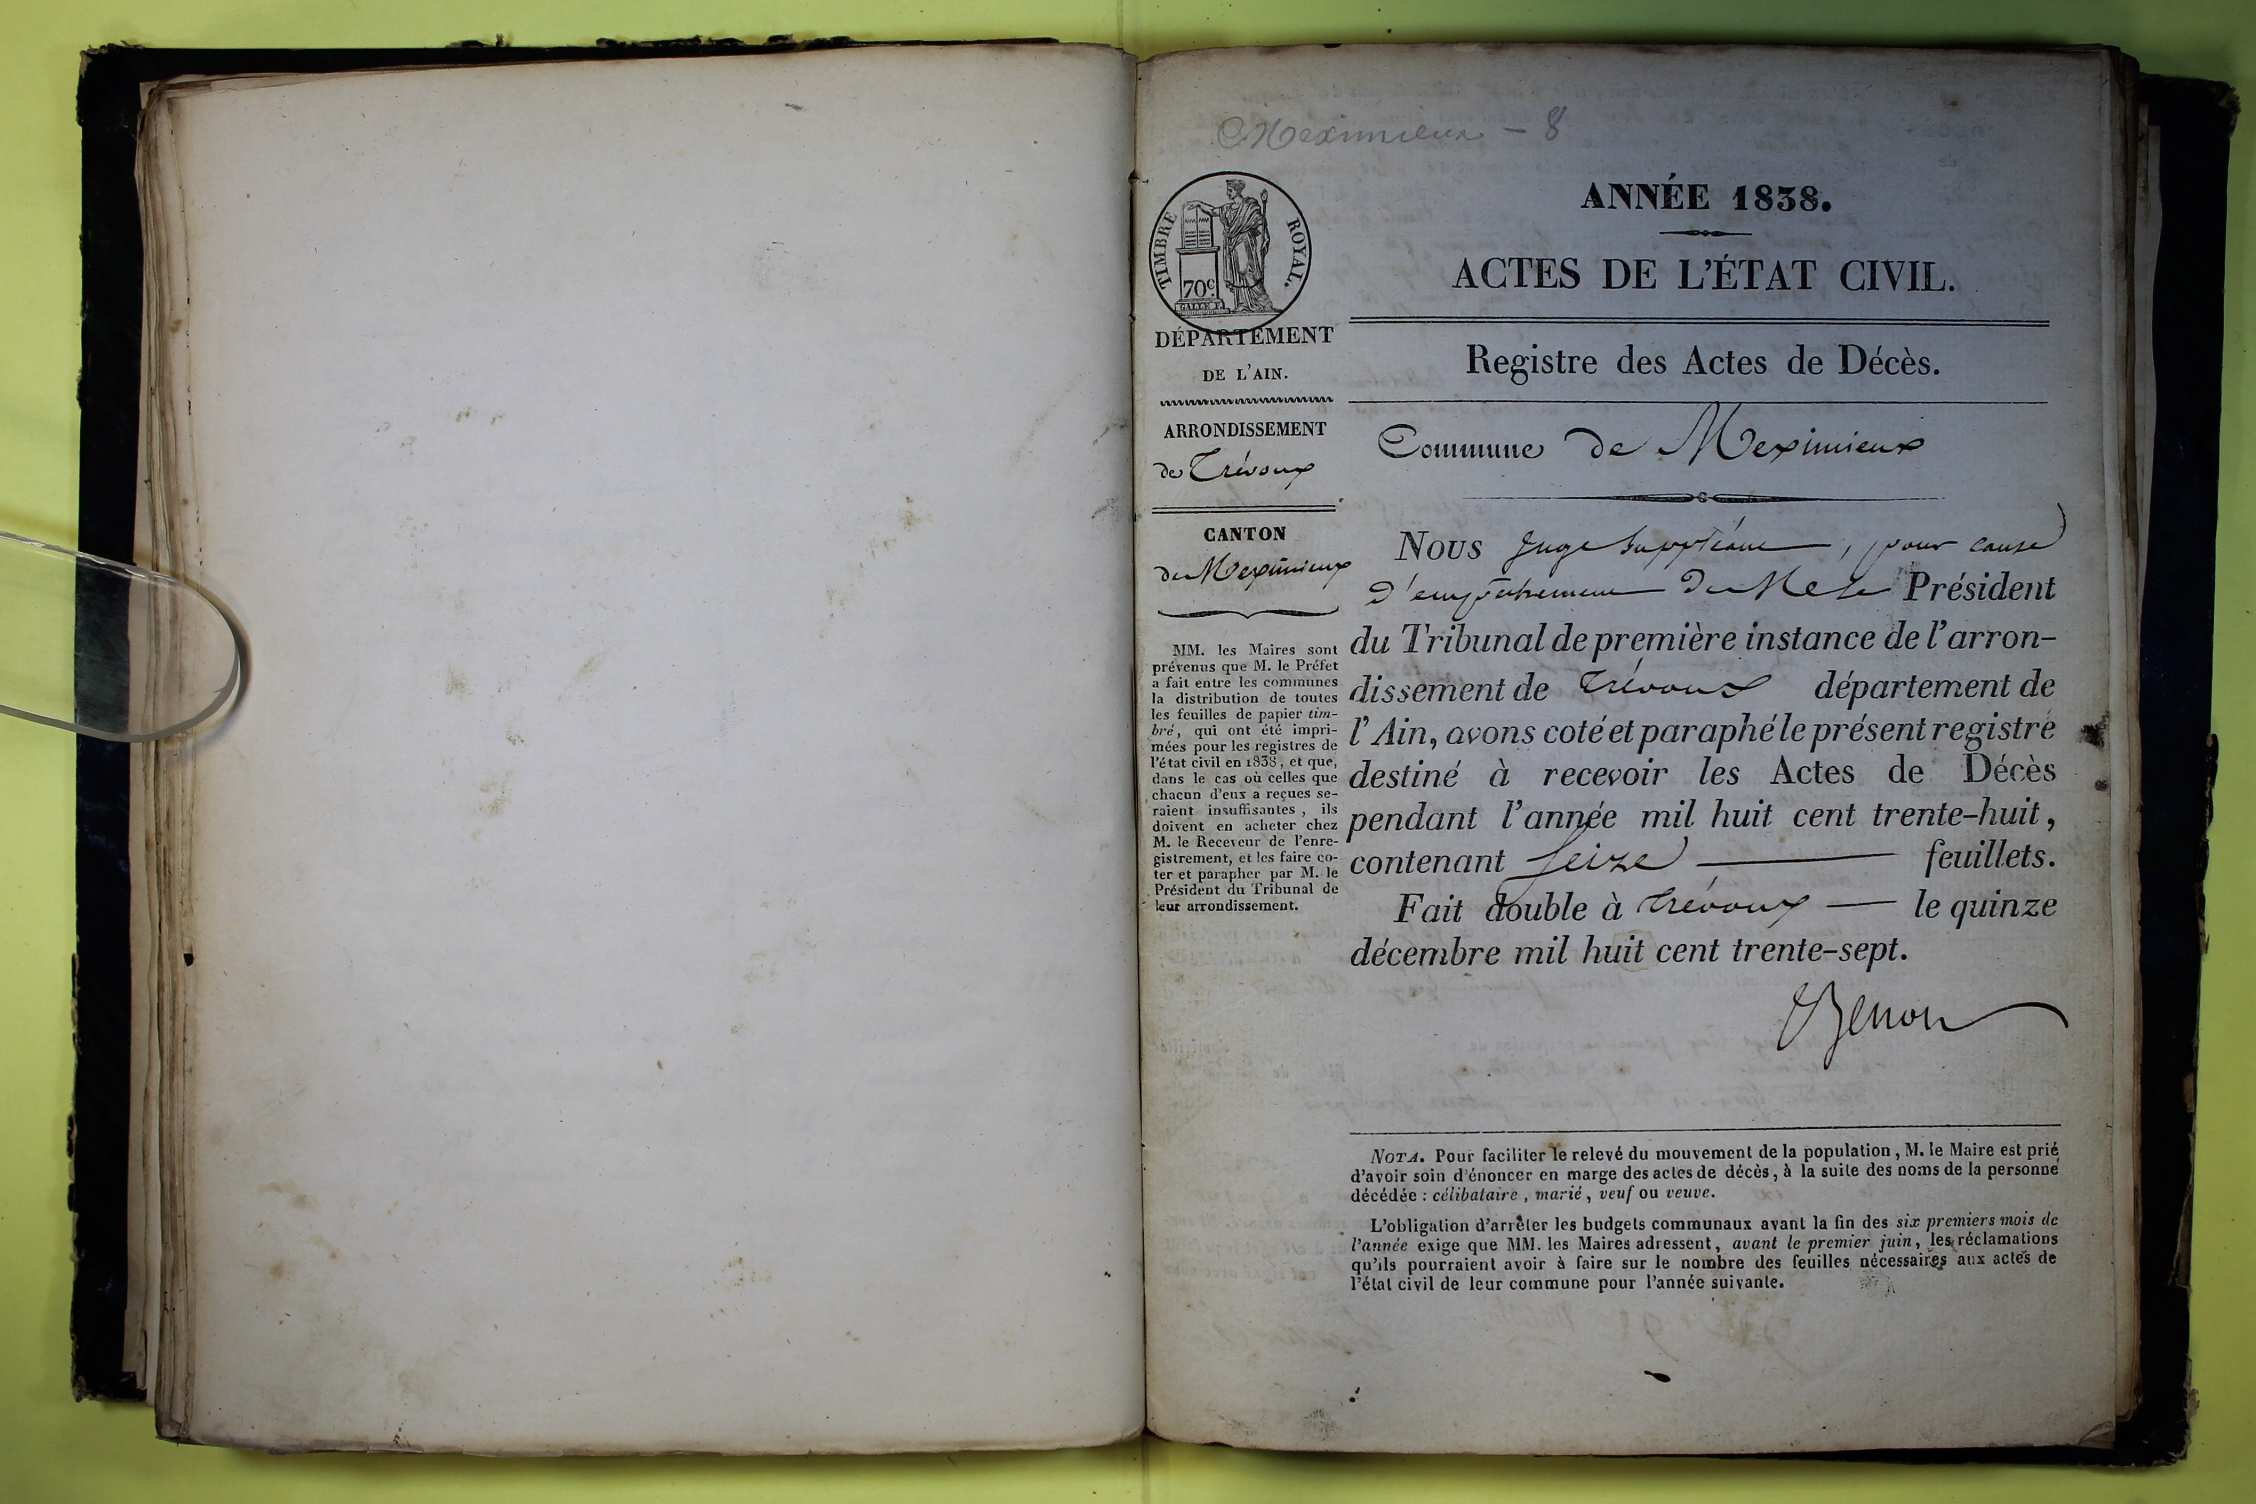 Meximieux – 8
TIMBRE ROYAL.
70c.
ANNÉE 1838.
ACTES DE L'ÉTAT CIVIL.
Registre des Actes de Décès.
Commune de Meximieux
DÉPARTEMENT
DE L'AIN.
ARRONDISSEMENT
de Trévoux
CANTON
de Meximieux
MM. les Maires sont
prévenus que M. le Préfet
a fait entre les communes
la distribution de toutes
les feuilles de papier tim-
bré, qui ont été impri-
mées pour les registres de
l'état civil en 1838, et que,
dans le cas où celles que
chacun d'eux a reçues se-
raient insuffisantes, ils
doivent en acheter chez
M. le Receveur de l'enre-
gistrement, et les faire co-
ter et parapher par M. le
Président du Tribunal de
leur arrondissement.
Nous Juge Suppléant, pour cause
d'empêchement de M. le Président
du Tribunal de première instance de l'arron-
dissement de Trévoux département de
l'Ain, avons coté et paraphé le présent registre
destiné à recevoir les Actes de Décès
pendant l'année mil huit cent trente-huit,
contenant Seize feuillets.
Fait double à Trévoux — le quinze
décembre mil huit cent trente-sept.
NOTA. Pour faciliter le relevé du mouvement de la population, M. le Maire est prié
d'avoir soin d'énoncer en marge des actes de décès, à la suite des noms de la personne
décédée : célibataire, marié, veuf ou veuve.
L'obligation d'arrêter les budgets communaux avant la fin des six premiers mois de
l'année exige que MM. les Maires adressent, avant le premier juin, les réclamations
qu'ils pourraient avoir à faire sur le nombre des feuilles nécessaires aux actes de
l'état civil de leur commune pour l'année suivante.